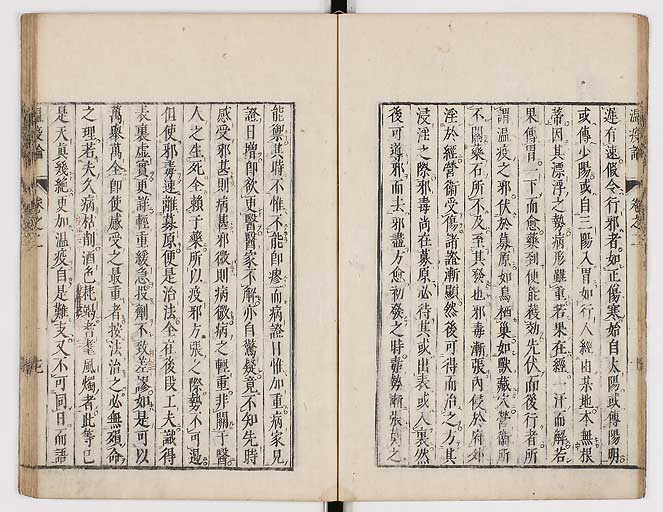 遲有速。假令行邪者。如正傷寒。始自太陽。或傳陽明
或傳少陽。或自三陽入胃。如行人經由某地。本無根
蒂。因其漂浮之勢。病形雖重。若果在經。一汗而解。若
果傳胃。一下而愈。藥到便能獲効。先伏而後行者。所
謂温疫之邪。伏於募原。如鳥栖巢。如獸藏穴。營衞所
不關。藥石所不及。至其發也。邪毒漸張。内侵於府。外
淫於經。營衞受傷。諸證漸顯。然後可得而治之。方其
浸淫之際。邪毒尚在募原。必待其或出表或入裏。然
後可導邪而去。邪盡方愈。初發之時。毒勢漸張。莫之
能禦。其時不惟不能即瘳。而病證日惟加重。病家見
證日增。即欲更醫。醫家不解。亦自驚疑。竟不知先時
感受。邪甚則病甚。邪微則病微。病之輕重。非關于醫。
人之生死。全賴于藥。所以疫邪方張之際。勢不可遏。
但使邪毒速離募原。便是治法。全在後段工夫。識得
表裏虛實。更詳輕重緩急。投劑不致差謬。如是可以
萬舉萬全。即使感受之最重者。按法治之。必無殞命
之理。若夫久病枯削。酒色耗弱者。耄風燭者。此等已
是天真幾絶。更加温疫。自是難支。又不可同日而語
温疫論
卷之一
温疫論
卷之一